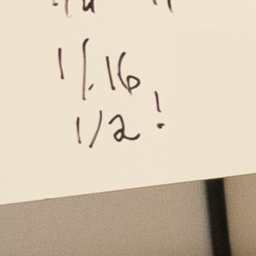 1/.16
1/2!